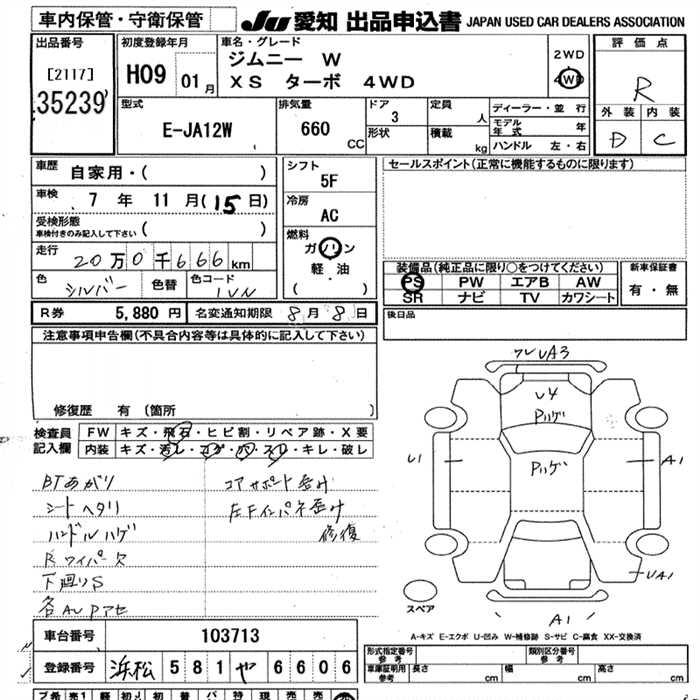 車内保管・守衛保管
JU 愛知 出品申込書 JAPAN USED CAR DEALERS ASSOCIATION
出品番号
[2117]
35239
初度登録年月
H09 01月
車名・グレード
ジムニー W
XS ターボ 4WD
2WD
4WD
評価点
R
外装 内装
D C
型式
E-JA12W
排気量
660 CC
ドア
3
形状
定員
人
積載
kg
ディーラー・並行
モデル年式 年
ハンドル 左・右
車歴
自家用・( )
車検
7年 11月(15日)
受検形態
車検付きのみ記入して下さい
( )
走行
20万0千666km
色
シルバー
色替
色コード
1VN
シフト
5F
冷房
AC
燃料
ガソリン
軽油
( )
セールスポイント(正常に機能するものに限ります)
装備品(純正品に限り○をつけてください)
PS PW エアB AW
SR ナビ TV カワシート
新車保証書
有・無
R券 5,880円 名変通知期限 8月8日
後日品
注意事項申告欄(不具合内容等は具体的に記入して下さい)
修復歴 有(箇所 )
検査員
記入欄
FW キズ・飛石・ヒビ割・リペア跡・X要
内装 キズ・汚レ・コゲ・穴・スレ・キレ・破レ
BTあがり
シートヘタリ
ハンドルハゲ
Rワイパー欠
下廻りS
各AUPアセ
コアサポート歪み
左Fインパネ歪み
修復
ワレUA3
U4
Pハゲ
Pハゲ
U1
A1
UA1
A1
スペア
A-キズ E-エクボ U-凹み W-補修跡 S-サビ C-腐食 XX-交換済
車台番号 103713
登録番号 浜松 581 や 6606
形式指定番号
参考
類別区分番号
参考
車庫証明用
参考
長さ cm 幅 cm 高さ cm